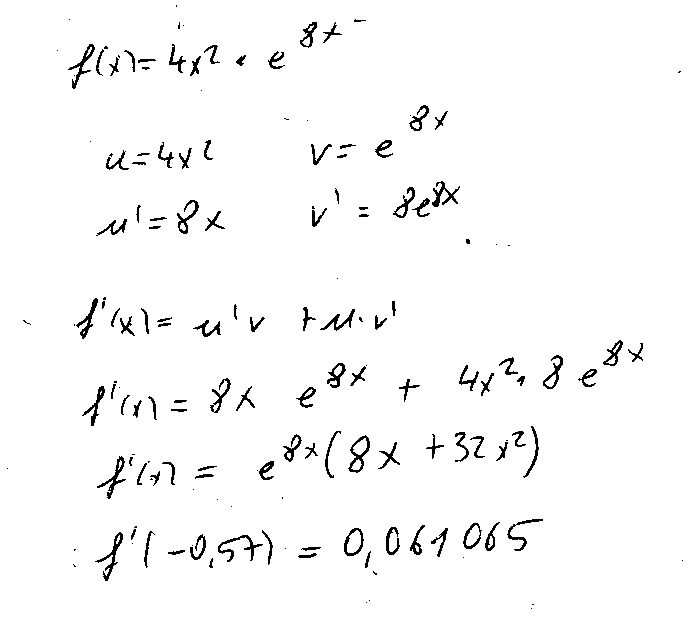 f(x) = 4x² · e^8x
u = 4x² v = e^8x
u' = 8x v' = 8e^8x
f'(x) = u'v + u·v'
f'(x) = 8x e^8x + 4x² · 8 e^8x
f'(x) = e^8x (8x + 32x²)
f'(-0,57) = 0,061065